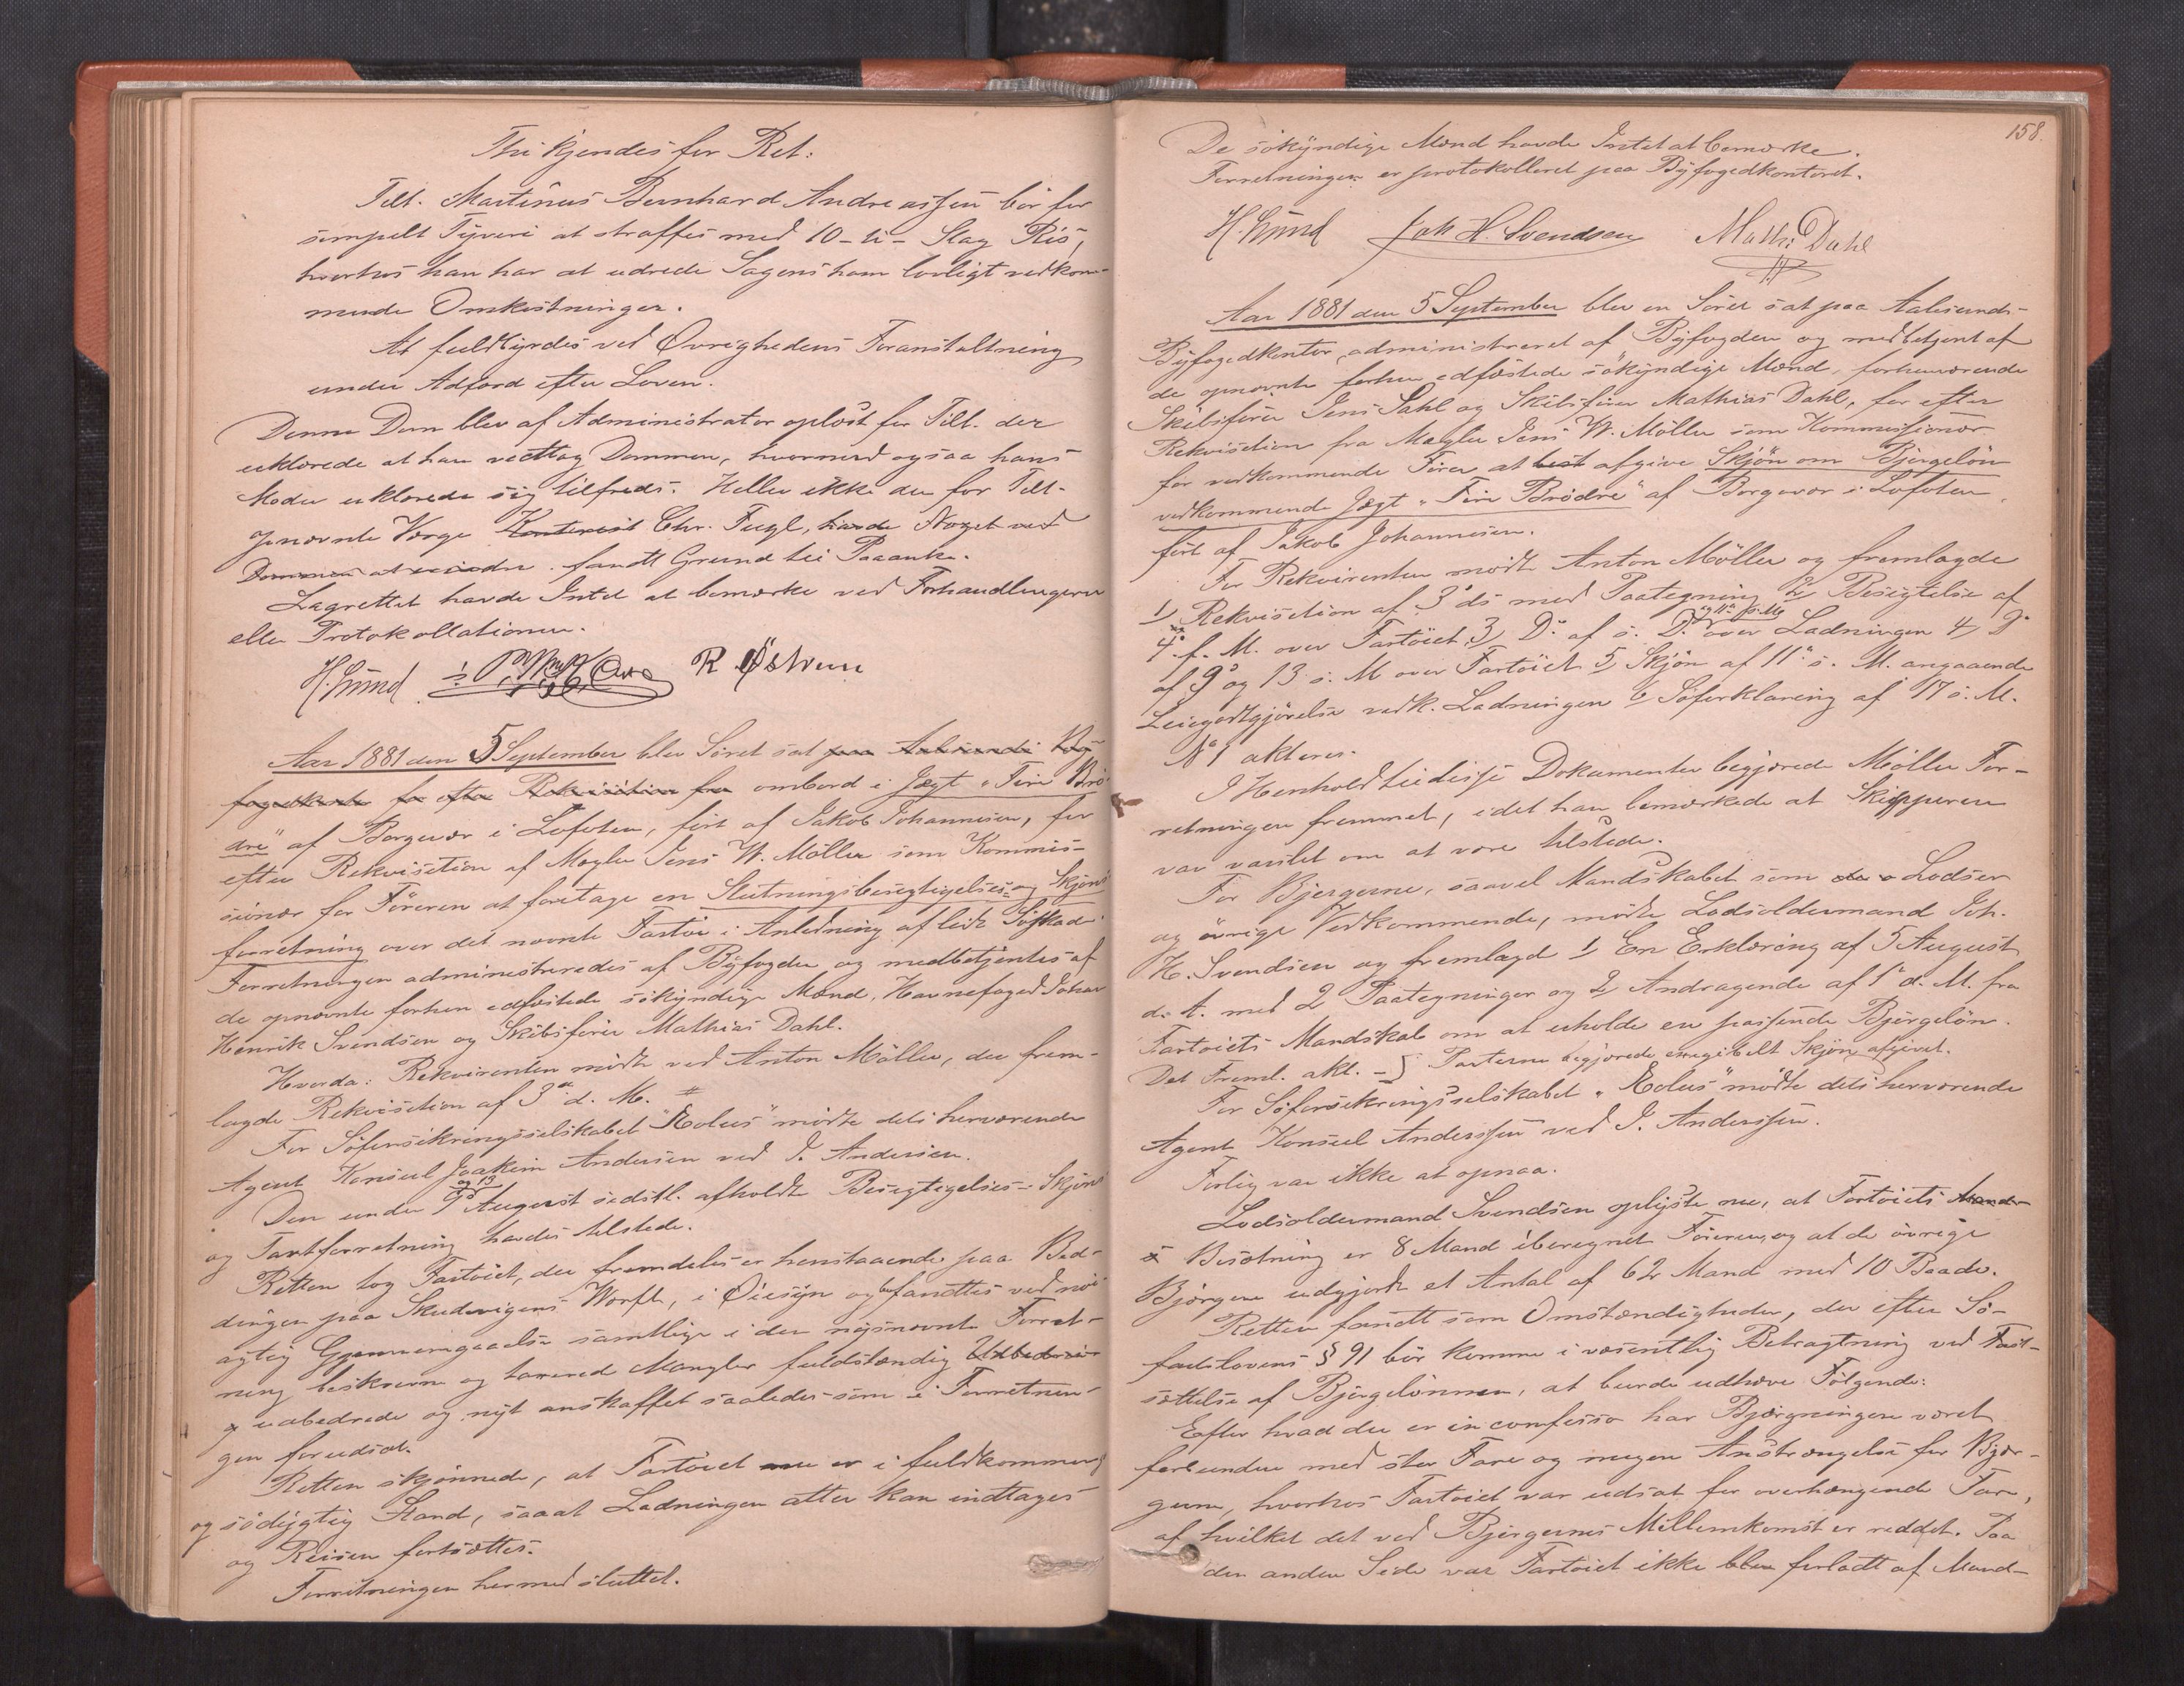 Thi kjendes for Ret:
Tilt. Martinus Bernhard Andreassen bör for
simpelt Tyveri at straffes med 10 - ti - Slag Ris,
hvorhos han har at udrede Sagens ham lovligt vedkom-
mende Omkostninger.
At fuldbyrdes ved Øvrighedens Foranstaltning
under Adfærd efter Loven.
Denne Dom blev af Administrator oplæst for Tilt. der
erklærede at han vedtog Dommen, hvormed ogsaa hans
Moder erklærede sig tilfreds. Heller ikke den for Tilt.
opnævnte Værge Kontorist Chr. Fugl, havde Noget ved
Dommen at erindre. fandt Grund til Paaanke.
Lagrettet havde Intet at bemærke ved Forhandlingerne
eller Protokollationen.
H. Lund R Østrem
Aar 1881 den 5 September blev Söret sat paa Aalesunds By-
fogedkontor for efter Rekvisition fra ombord i Jægt "Fire Brö-
dre" af Borgevær i Lofoten, fört af Jakob Johannesen, for
efter Rekvisition af Mægler Jens W. Möller som Kommis-
sionær for Föreren at foretage en Slutningsbesigtigelses og Skjöns-
forretning over det nævnte Fartöi i Anledning af lidt Söskade.
Forretningen administreredes af Byfogden og medbetjentes af
de opnævnte forhen edfæstede sökyndige Mænd, Havnefoged Johan
Henrik Svendsen og Skibsförer Mathias Dahl.
Hvorda: Rekvirenten mödte ved Anton Möller, der frem-
lagde Rekvisition af 3die d. M. #
For Söforsikringsselskabet "Æolus" mödte dets herværende
Agent Konsul Joakim Andersen ved J. Andersen.
og 13
Den under 9de August sidstl. afholdte Besigtigelses- Skjöns
og Taxtforretning havdes tilstede.
Retten tog Fartöiet, der fremdeles er henstaaende paa Bed-
dingen paa Skudevigens Værft, i Öiesyn og befandtes ved nöi-
agtig Gjennemgaaelse samtlige i den nysnævnte Forret-
ning beskrevne og taxerede Mangler fuldstændig Udbedrede
og udbedrede og nyt anskaffet saaledes som i Forretnin-
gen forudsat.
Retten skjönnede, at Fartöiet nu er i fuldkommen
og södygtig Stand, saaat Ladningen atter kan indtages
og Reisen fortsættes.
Forretningen hermed sluttet.
158.
De sökyndige Mænd havde Intet at bemærke.
Forretningen er protokolleret paa Byfogedkontoret.
H. Lund Joh H. Svendsen Maths Dahl
Aar 1881 den 5 September blev en Söret sat paa Aalesunds-
Byfogedkontor, administreret af Byfogden og medbetjent af
de opnævnte forhen edfæstede sökyndige Mænd, forhenværende
Skibsförer Jens Dahl og Skibsförer Mathias Dahl, for efter
Rekvisition fra Mægler Jens W. Möller som Kommissionær
for vedkommende Förer at afgive Skjön om Bjergelön
vedkommende Jægt "Fire Brödre" af Borgevær i Lofoten,
fört af Jakob Johannesen.
For Rekvirenten mödte Anton Möller og fremlagde
1) Rekvisition af 3die ds med Paategning 2) Besigtelse af
og 11te s. M.
4de f. M. over Fartöiet, 3) Do af s. D. over Ladningen 4) Do
af 9de og 13 s. M over Fartöiet 5) Skjön af 11te s. M. angaaende
Leiegodtgjörelse vedk. Ladningen 6) Söforklaring af 17 s. M.
No 1 akteres.
I Henhold til disse Dokumenter begjærede Möller For-
retningen fremmet, idet han bemærkede at Skipperen
var varslet om at være tilstede.
For Bjergerne, saavel Mandskabet som Lodser
og övrige Vedkommende, mödte Lodsoldermand Joh.
H. Svendsen og fremlagd 1) En Erklæring af 5 August
d. A. med 2 Paategninger og 2) Andragende af 1ste d. M. fra
Fartöiets Mandskab om at erholde en passende Bjergelön.
Det Freml. akt. - § Parterne begjærede exegibelt Skjön afgivet.
For Söforsikringsselskabet "Æolus" mödte dets herværende
Agent Konsul Anderssen ved J. Anderssen.
Forlig var ikke at opnaa.
Lodsoldermand Svendsen oplyste nu, at Fartöiets Mand-
s Besætning er 8 Mand iberegnet Föreren, og at de övrige
Bjergere udgjorde et Antal af 62 Mand med 10 Baade.
Retten fandt som Omstændigheder, der efter Sö-
fartslovens § 91 bör komme i væsentlig Betragtning ved Fast-
sættelse af Bjergelönnen, at burde udhæve Fölgende:
Efter hvad der er in confesso har Bjergningen været
forbunden med stor Fare og megen Anstrængelse for Bjer-
gerne, hvorhos Fartöiet var udsat for overhængende Fare,
af hvilket det ved Bjergernes Mellemkomst er reddet. Paa
den anden Side var Fartöiet ikke blevn forladt af Mand-